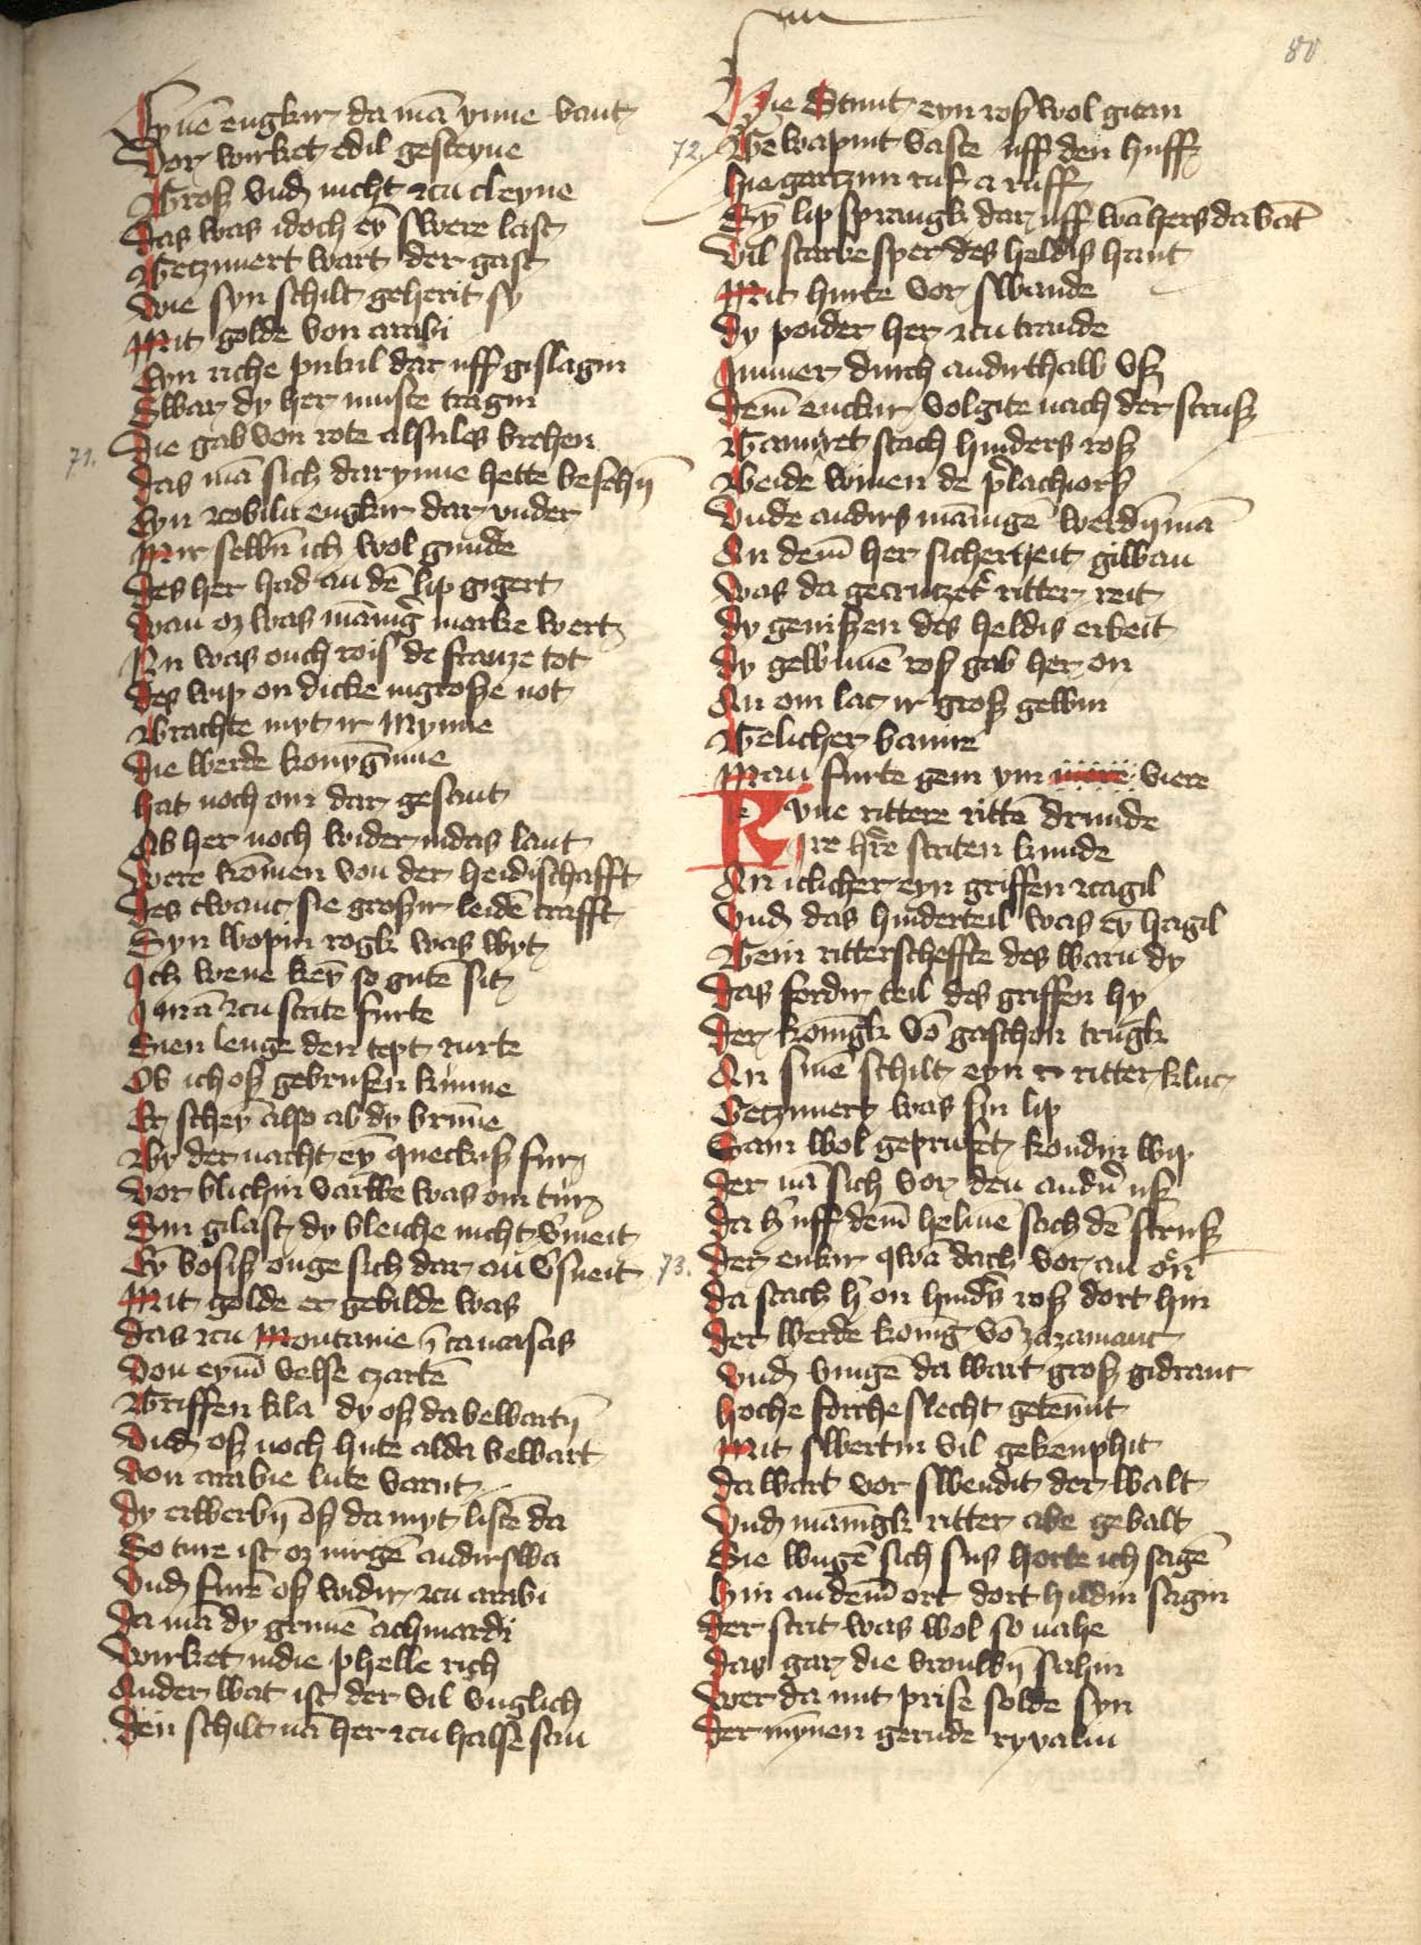 80
Eynē engkir da mā ynne vant
Vor wirket edil gesteyne
Grosz vnd nicht zcu cleyne
Das was idoch eȳ swere last
Getzimert wart der gast
Wie syn schilt geherit sy
Mit golde von arabi
Eyn riche pukil dar uff gislagin
Swar dy her muste tragin
71.
Die gab von rote alsulcs brehen
Das mā sich darynne hette beschȳ
Eyn zcobilin engkir dar vnder
Mir selbn̄ ich wol gunde
Des her had an dē lip gigert
Wan oz was mānig̉ marke wert
Nu was ouch rois de franze tot
Des wip on dicke ingrosze not
Brachte myt ir Mynne
Die werde konyḡinne
Hat noch om dar gesant
Ab her noch wider indas lant
Were komen von der heidischafft
Des twanc sie groszir leidē crafft
Syn wopin rogk was wyt
Ich wene keȳ so gute sit
I mā zcu strite furte
Sien lenge den tept rurte
Ob ich osz gebrufen kunne
Er scheȳ also ab dy brune
By der nacht eȳ queckisz fur
Vor blichin varwe was om tur
Sin gilast dy bleiche nicht v̉meit
Eȳ bosisz ouge sich dar an v̉sneit
Mit golde er gebilde was
Das zcu Montanie ī caucasas
Von eyn̄ velse czartē
Griffen kla dy osz da bewartȳ
Vnd osz noch hute alda bewart
Von arabie lute vart
Dy erwerbȳ osz da myt listē da
So ture ist oz nirgē andirswa
Vnd furē osz widir zcu arabi
Da mā dy grunē achmardi
Wirket indie phelle rich
Ander wat ist der vil vnglich
Den schilt nā her zcu halse san
Hie Stunt eyn rosz wol gitan
72.
Gewapint vaste uff den huff
Hie garczun ruf a ruff
Sȳ lip sprangk dar uff wā hers da vāt
Vil starke sper des heldis hant
Mit hurte vor swande
Dy poider her zcu trande
Immer durch andirthalb vsz
Dem̄ enckir volgite nach der strusz
Gamuret stach hinders rosz
Beide winen de p̉lachiors
Vnde andirs mānigē werdȳ mā
An dem̄ her sicherheit gilwan
Was da gecrutzet̉ ritter reit
Dy genisszen des heldis erbeit
Dy gew̄unē rosz gab her on
An om lac ir grosz gewin
Gelicher banire
Man furte gein ym viere
Kvne rittere rittē drunde
Ire hr̉e striten kunde
An iclicher eyn griffen zcagil
Vnd das hinderteil was eȳ hagil
Gein ritterscheffte des warn dy
Das fordir teil des griffen hy
Der konigk vō gaschon trugk
An sinē schilt eyn ritter kluc
Getzimert was sin lip
Gam wol gepruset kondin wip
Der nā sich vor den andn̉ usz
Da h̉ uff dem̄ helme sach dē strusz
73.
Der enkir qwā dach vor an on
Da stach h̉ on hind̉s rosz dort hin
Der werde konig̉ vō zazamanc
Vnd vingē da wart grosz gidranc
Hoche forche slecht getēnnt
Mit swertin vil gekenphit
Da wart vor swendit der walt
Vnd mānigk ritter abe gevalt
Sie wugē sich sus horte ich sagē
Hin an dem̄ ort dort hildin sagin
Der strit was wol so nahe
Das gar die vrouwȳ sahin
Wer da mit prise solde syn
Der mȳnen gerude ryvalin